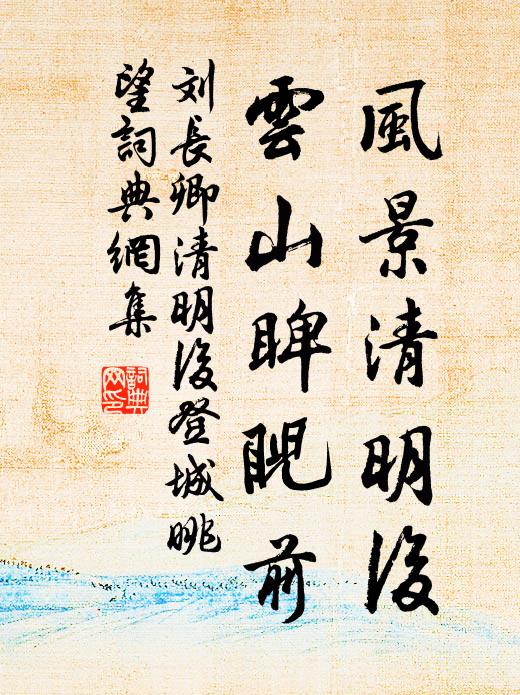 風景清明後
雲山睥睨前
刘長卿清明後登城眺
望詞典網集
詞典
网印